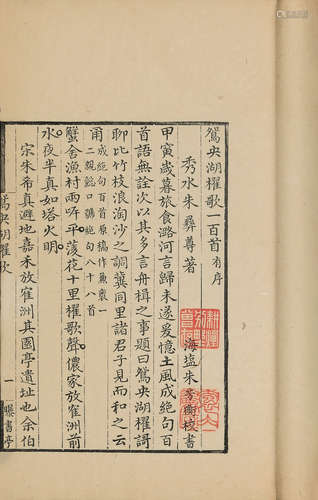 鴛央湖櫂歌一百首有序
秀水朱彝尊著
海塩朱芳衡校書
甲寅歲暮旅食潞河言歸未遂爰憶土風成絕句百
首語無詮次以其多言舟楫之事題曰鴛央湖櫂謌
聊比竹枝浪淘沙之調冀同里諸君子見而和之云
爾
成絕句百首原稿作兼衷一
二親懿口號絕句八十八首
蟹舍漁村兩岸平菱花十里櫂歌聲儂家放隺洲前
水夜半真如塔火明
宋朱希真避地嘉禾放隺洲其園亭遺址也余伯
鴛央湖櫂歌
一
曝書亭